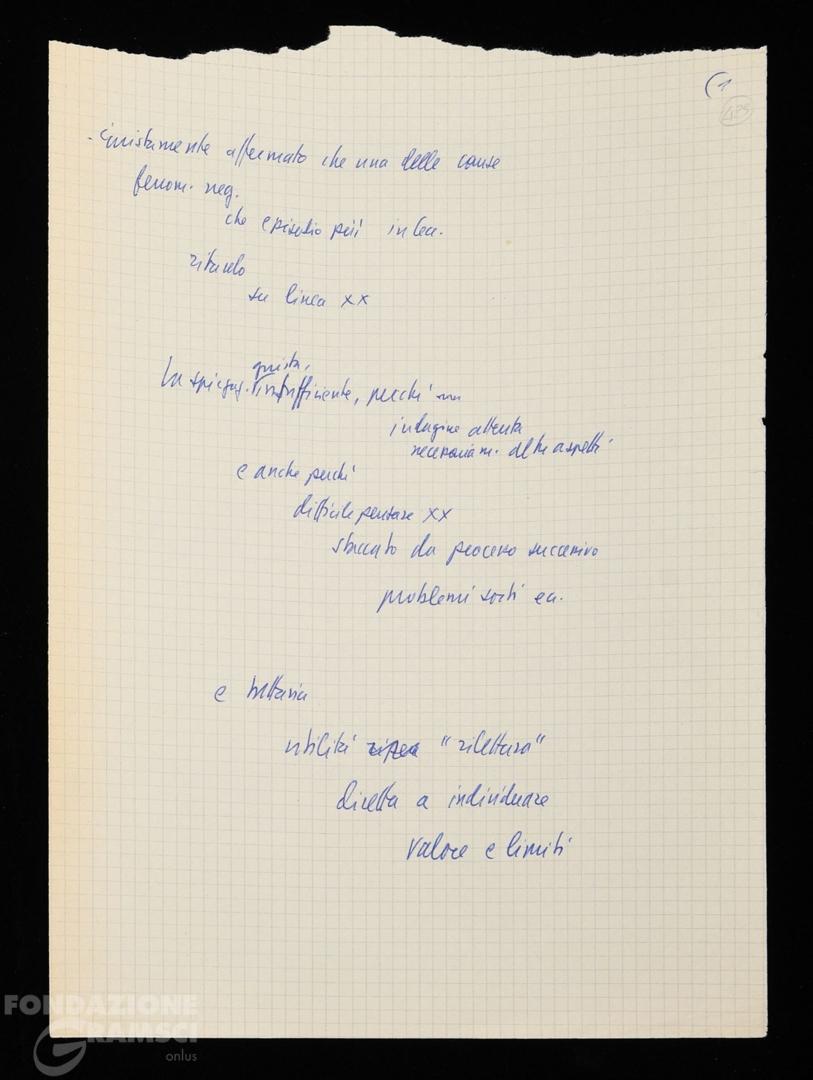 (1
435
- Giustamente affermato che una delle cause
fenom. neg.
che episodio più
ritardo
su linea xx
giusta,
La spiegaz. insufficiente, perché una
indagine attenta
necessariam. altri aspetti
e anche perché
difficile pensare xx
staccato da processo successivo
problemi sorti ecc.
e tuttavia
utilità "rilettura"
diretta a individuare
valore e limiti
FONDAZIONE
GRAMSCI
onlus